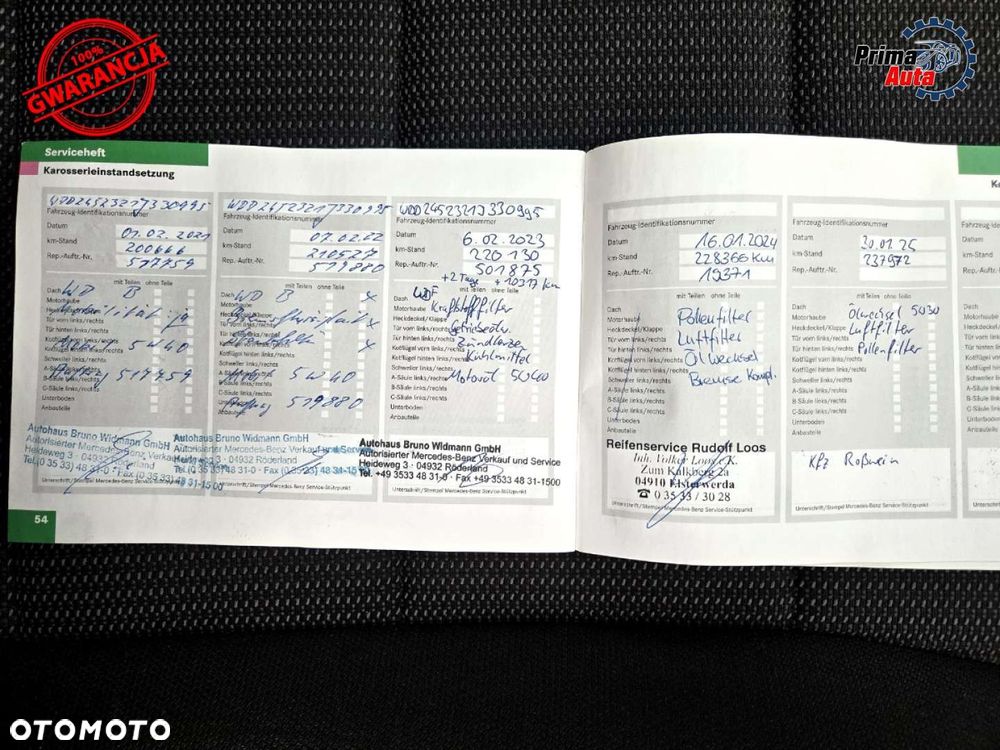 100%
GWARANCJA
Prima
Auta
Serviceheft
Karosserieinstandsetzung
WDD2452321J330995
Fahrzeug-Identifikationsnummer
Datum 01.02.2021
km-Stand 200666
Rep.-Auftr.-Nr. 517759
mit Teilen ohne Teile
Dach WD B
Motorhaube
Heckdeckel/Klappe
Tür vorn links/rechts
Tür hinten links/rechts
Kotflügel vorn links/rechts 5W40
Kotflügel hinten links/rechts
Schweller links/rechts
A-Säule links/rechts 517759
B-Säule links/rechts
C-Säule links/rechts
Unterboden
Anbauteile
Autohaus Bruno Widmann GmbH
Autorisierter Mercedes-Benz Verkauf und Service
Heideweg 3 · 04932 Röderland
Tel. (0 35 33) 48 31-0 · Fax (0 35 33) 48 31-15 00
WDD2452321J330995
Fahrzeug-Identifikationsnummer
Datum 07.02.22
km-Stand 210527
Rep.-Auftr.-Nr. 519880
mit Teilen ohne Teile
Dach WD B x
Motorhaube
Heckdeckel/Klappe x
Tür vorn links/rechts
Tür hinten links/rechts x
Kotflügel vorn links/rechts
Kotflügel hinten links/rechts
Schweller links/rechts
A-Säule links/rechts 5W40
B-Säule links/rechts
C-Säule links/rechts 519880
Anbauteile
Autohaus Bruno Widmann GmbH
Autorisierter Mercedes-Benz Verkauf und Service
Heideweg 3 · 04932 Röderland
Tel. (0 35 33) 48 31-0 · Fax (0 35 33) 48 31-15 00
Unterschrift/Stempel Mercedes-Benz Service-Stützpunkt
WDD2452321J330995
Fahrzeug-Identifikationsnummer
Datum 6.02.2023
km-Stand 220130
Rep.-Auftr.-Nr. 501875
+2 Tage + 10317 km
mit Teilen ohne Teile
Dach
Motorhaube Kraftstofffilter
Heckdeckel/Klappe
Tür vorn links/rechts Getriebeöl
Tür hinten links/rechts Zündkerzen
Kotflügel vorn links/rechts Kühlmittel
Kotflügel hinten links/rechts
Schweller links/rechts Motoröl 5W40
A-Säule links/rechts
B-Säule links/rechts
C-Säule links/rechts
Unterboden
Anbauteile
Autohaus Bruno Widmann GmbH
Autorisierter Mercedes-Benz Verkauf und Service
Heideweg 3 · 04932 Röderland
Tel. +49 3533 48 31-0 · Fax +49 3533 48 31-1500
Unterschrift/Stempel Mercedes-Benz Service-Stützpunkt
54
Fahrzeug-Identifikationsnummer
Datum 16.01.2024
km-Stand 228366 Km
Rep.-Auftr.-Nr. 19371
mit Teilen ohne Teile
Dach
Motorhaube Pollenfilter
Heckdeckel/Klappe
Tür vorn links/rechts Luftfilter
Tür hinten links/rechts
Kotflügel vorn links/rechts Ölwechsel
Kotflügel hinten links/rechts
Schweller links/rechts Bremse Kompl.
A-Säule links/rechts
B-Säule links/rechts
C-Säule links/rechts
Unterboden
Anbauteile
Reifenservice Rudolf Loos
Inh. Volker Loos e.K.
Zum Kalkberg 2a
04910 Elsterwerda
☎ 0 35 33 / 30 28
Unterschrift/Stempel Mercedes-Benz Service-Stützpunkt
Fahrzeug-Identifikationsnummer
Datum 20.01.25
km-Stand 237972
Rep.-Auftr.-Nr.
mit Teilen ohne Teile
Dach Ölwechsel 5W30
Motorhaube Luftfilter
Heckdeckel/Klappe
Tür vorn links/rechts Pollenfilter
Tür hinten links/rechts
Kotflügel vorn links/rechts
Kotflügel hinten links/rechts
Schweller links/rechts
A-Säule links/rechts
B-Säule links/rechts
C-Säule links/rechts
Unterboden
Anbauteile
Kfz Roßwein
Unterschrift/Stempel Mercedes-Benz Service-Stützpunkt
OTOMOTO